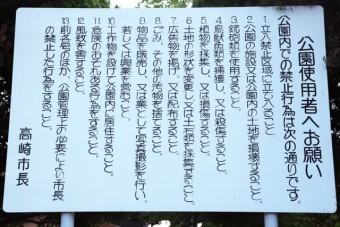 公園使用者へお願い
公園内での禁止行為は次の通りです。
1.立入禁止区域に立ち入ること。
2.公園の施設又は公園内の土地を損壊すること。
3.銃砲類を使用すること。
4.鳥獣魚類を捕獲し、又は殺傷すること。
5.植物を採集し、又は損傷すること。
6.土地の形状を変更し、又は土石類を採集すること。
7.広告物を掲げ、又は配布すること。
8.ごみ、その他の汚物を捨てること。
9.物品を販売し、又は業として写真撮影を行い、
若しくは興業を営むこと。
10.工作物を設けて公園内に居住すること。
11.危険のおそれある行為をすること。
12.風致を害すること。
13.前各号のほか、公園管理上の必要により市長
の禁止した行為をすること。
高崎市長